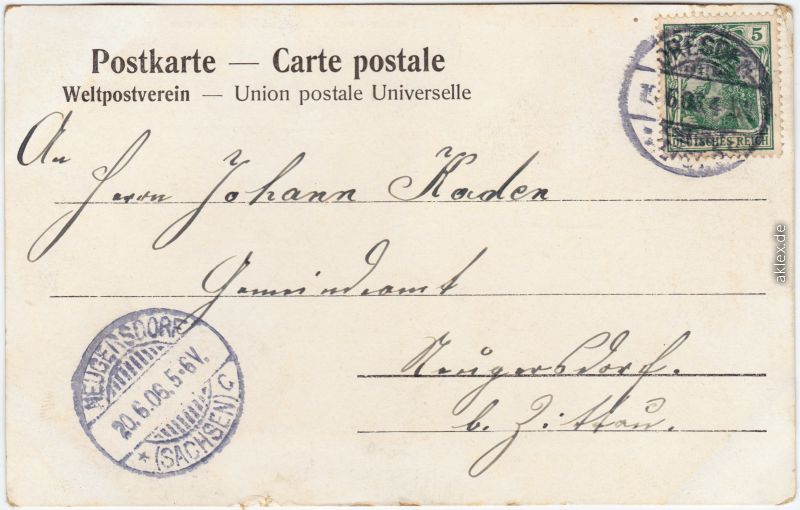 Postkarte — Carte postale
Weltpostverein — Union postale Universelle
An
Herrn Johann Kaden
Gemeindeamt
Neugersdorf.
b. Zittau.
NEUGERSDORF
20.6.06.5-6V.
* (SACHSEN) C
DRESDEN
5
DEUTSCHES REICH
aklex.de